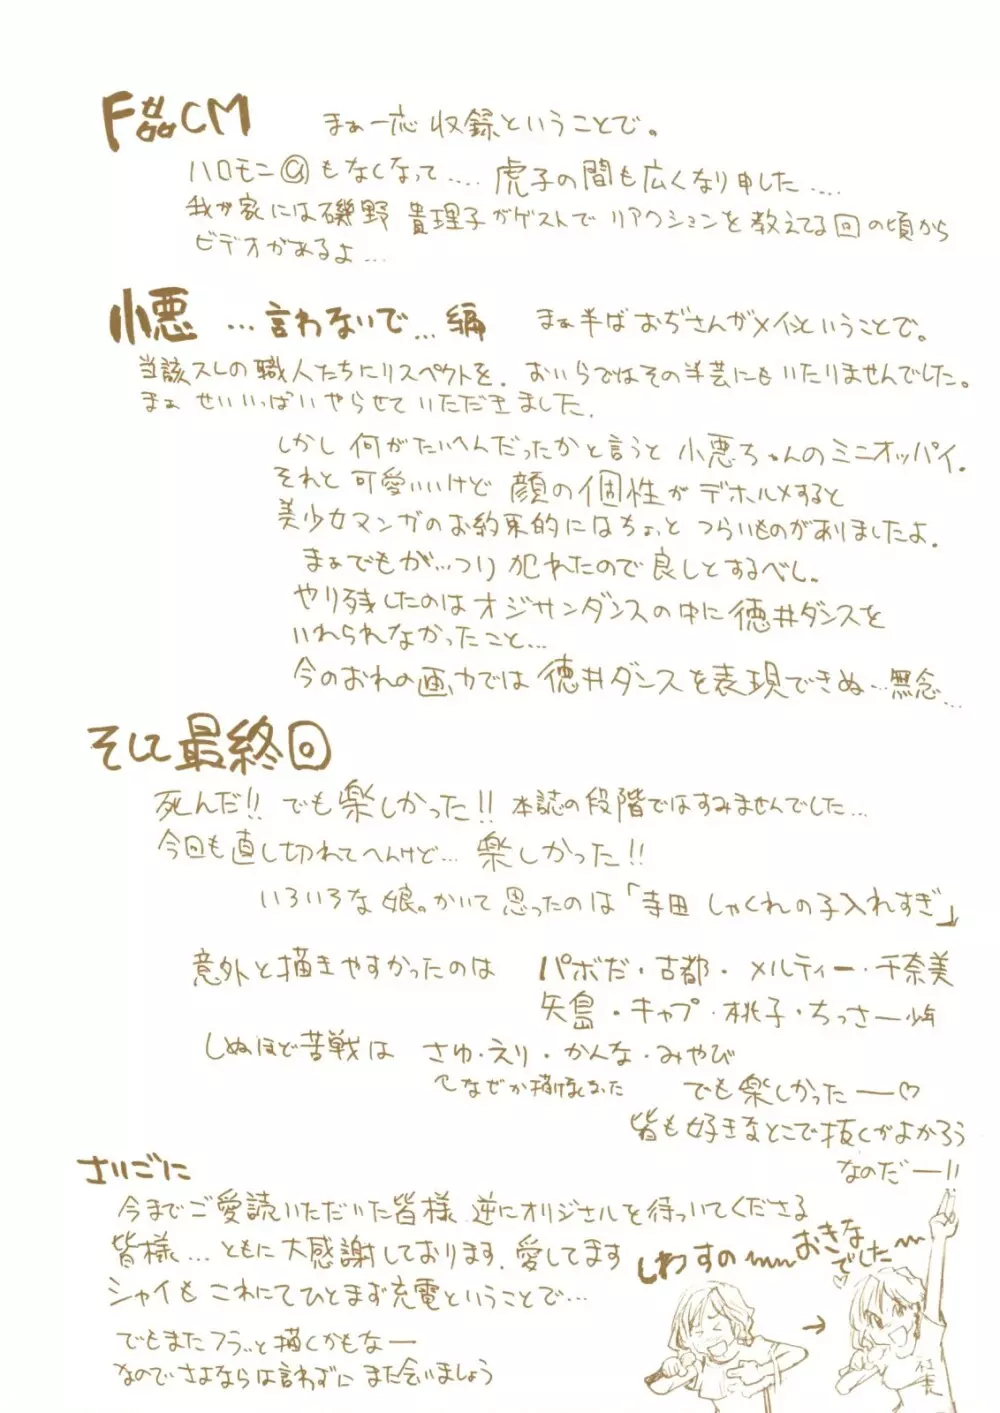 F姦CM まぁ一応収録ということで。
ハロモニ@もなくなって.... 虎子の間も広くなり申した....
我が家には磯野 貴理子がゲストでリアクションを教えてる回の頃から
ビデオがあるよ...
小悪 ...言わないで...編 まぁ半ばおぢさんがメインということで。
当該スレの職人たちにリスペクトを。おいらではその半芸にもいたりませんでした。
まぁ せいいっぱいやらせていただきました。
しかし何がたいへんだったかと言うと 小悪ちゃんのミニオッパイ。
それと可愛いいけど 顔の個性がデホルメすると
美少女マンガのお約束的にはちょっとつらいものがありましたよ。
まぁでもが...っつり犯れたので良しとするべし。
やり残したのはオジサンダンスの中に徳井ダンスを
いれられなかったこと...
今のおれの画力では徳井ダンスを表現できぬ...無念...
そして最終回
死んだ!! でも楽しかった!! 本誌の段階ではすみませんでした...
今回も直し切れてへんけど... 楽しかった!!
いろいろな娘。かいて思ったのは「寺田 しゃくれの子入れすぎ」
意外と描きやすかったのは パボだ・古都・メルティー・千奈美
矢島・キャプ・桃子・ちっさー少年
しぬほど苦戦は さゆ・えり・かんな・みやび
でも楽しかったー♡
皆も好きなとこで抜くがよかろう
なのだー!!
さいごに
今までご愛読いただいた皆様 逆にオリジナルを待っていてくださる
皆様...ともに大感謝しております。愛してます
シャイもこれにてひとまず充電ということで...
でもまたフラッと描くかもなー
なのでさよならは言わずに また会いましょう
しわすの〜
おきな
でした〜